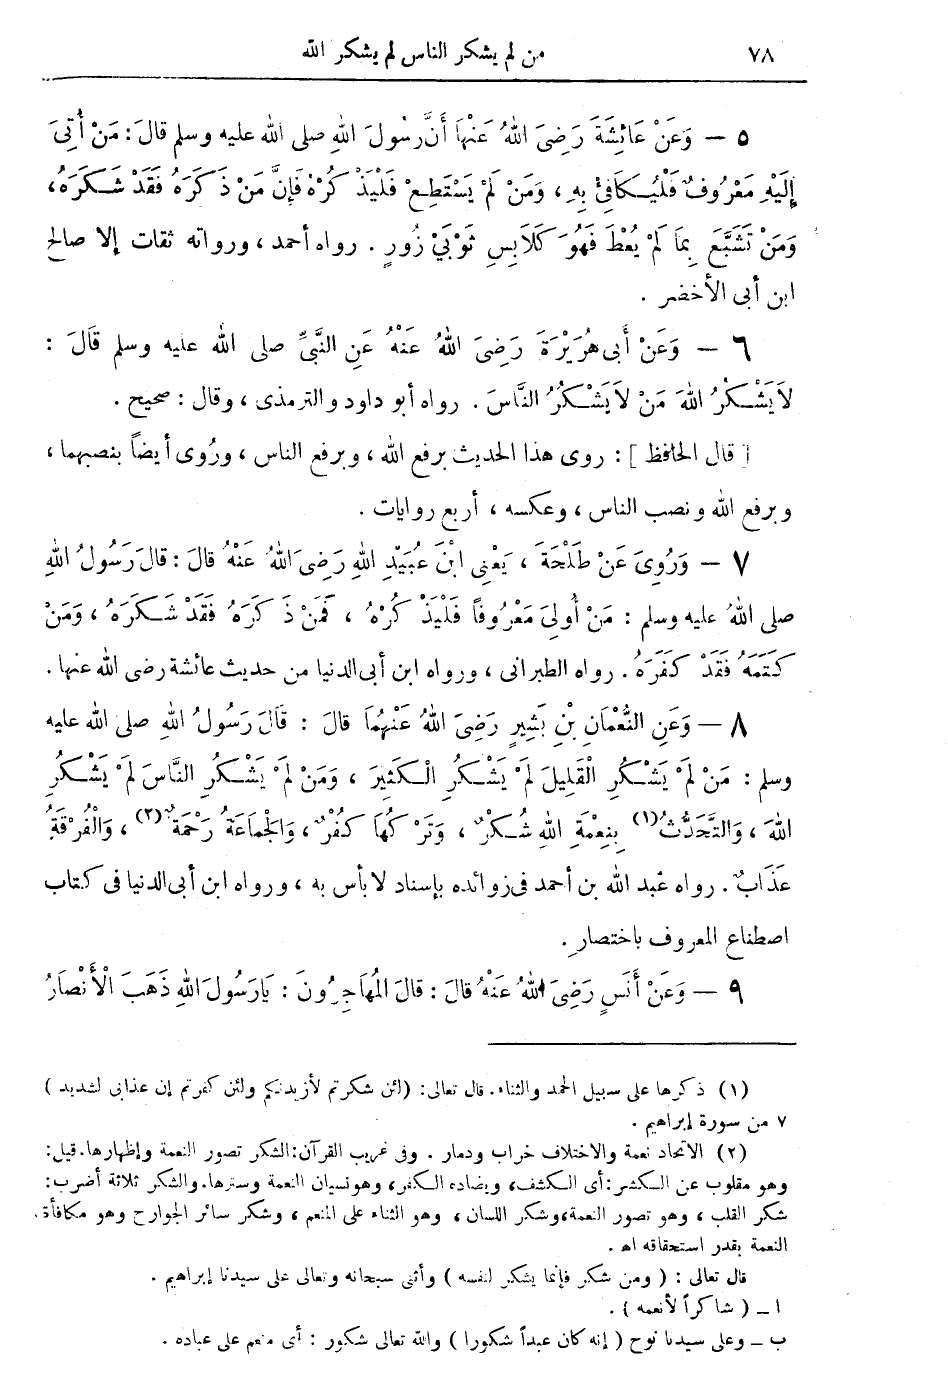 ٧٨ من لم يشكر الناس لم يشكر الله
٥ — وَعَنْ عَائِشَةَ رَضِىَ اللهُ عَنْهَا أَنَّ رَسُولَ اللهِ صلى الله عليه وسلم قالَ : مَنْ أُتِىَ
إِلَيْهِ مَعْرُوفٌ فَلْيُكَافِئْ بِهِ ، وَمَنْ لَمْ يَسْتَطِعْ فَلْيَذْكُرْهُ فَإِنَّ مَنْ ذَكَرَهُ فَقَدْ شَكَرَهُ ،
وَمَنْ تَشَبَّعَ بِمَا لَمْ يُعْطَ فَهُوَ كَلَابِسِ ثَوْبَيْ زُورٍ . رواه أحمد ، ورواته ثقات إلا صالح
ابن أبى الأخضر .
٦ — وَعَنْ أَبى هُرَيْرَةَ رَضِىَ اللهُ عَنْهُ عَنِ النَّبىِّ صلى الله عليه وسلم قَالَ :
لاَ يَشْكُرُ اللهَ مَنْ لاَ يَشْكُرُ النَّاسَ . رواه أبو داود والترمذى ، وقال : صحيح .
[ قال الحافظ ] : روى هذا الحديث برفع الله ، وبرفع الناس ، ورُوى أيضاً بنصبهما ،
وبرفع الله ونصب الناس ، وعكسه ، أربع روايات .
٧ — وَرُوِىَ عَنْ طَلْحَةَ ، يَعْنِى ابْنَ عُبَيْدِ اللهِ رَضِىَ اللهُ عَنْهُ قالَ : قالَ رَسُولُ اللهِ
صلى اللهُ عليه وسلم : مَنْ أُولِىَ مَعْرُوفاً فَلْيَذْكُرْهُ ، فَمَنْ ذَكَرَهُ فَقَدْ شَكَرَهُ ، وَمَنْ
كَتَمَهُ فَقَدْ كَفَرَهُ . رواه الطبرانى ، ورواه ابن أبى الدنيا من حديث عائشة رضى الله عنها .
٨ — وَعَنِ النُّعْمَانِ بْنِ بَشِيرٍ رَضِىَ اللهُ عَنْهُمَا قالَ : قَالَ رَسُولُ اللهِ صلى الله عليه
وسلم : مَنْ لَمْ يَشْكُرِ الْقَلِيلَ لَمْ يَشْكُرِ الْكَثِيرَ ، وَمَنْ لَمْ يَشْكُرِ النَّاسَ لَمْ يَشْكُرِ
اللهَ ، وَالتَّحَدُّثُ (١) بِنِعْمَةِ اللهِ شُكْرٌ ، وَتَرْكُهَا كُفْرٌ ، وَالْجَماعَةُ رَحْمَةٌ (٢) ، وَالْفُرْقَةُ
عَذَابٌ . رواه عبد الله بن أحمد فى زوائده بإسناد لا بأس به ، ورواه ابن أبى الدنيا فى كتاب
اصطناع المعروف باختصار .
٩ — وَعَنْ أَنَسٍ رَضِىَ اللهُ عَنْهُ قالَ : قالَ الْمُهَاجِرُونَ : يَا رَسُولَ اللهِ ذَهَبَ الْأَنْصَارُ
(١) ذكرها على سبيل الحمد والثناء . قال تعالى : (لئن شكرتم لأزيدنكم ولئن كفرتم إن عذابى لشديد )
٧ من سورة إبراهيم .
(٢) الاتحاد نعمة والاختلاف خراب ودمار . وفى غريب القرآن : الشكر تصور النعمة وإظهارها . قيل :
وهو مقلوب عن الكشر : أى الكشف ، ويضاده الكفر ، وهو نسيان النعمة وسترها . والشكر ثلاثة أضرب :
شكر القلب ، وهو تصور النعمة ، وشكر اللسان ، وهو الثناء على المنعم ، وشكر سائر الجوارح وهو مكافأة .
النعمة بقدر استحقاقه اه .
قال تعالى : ( ومن شكر فإنما يشكر لنفسه ) وأثنى سبحانه وتعالى على سيدنا إبراهيم .
ا ــ ( شاكراً لأنعمه ) .
ب ــ وعلى سيدنا نوح ( إنه كان عبداً شكورا ) والله تعالى شكور : أى منعم على عباده .